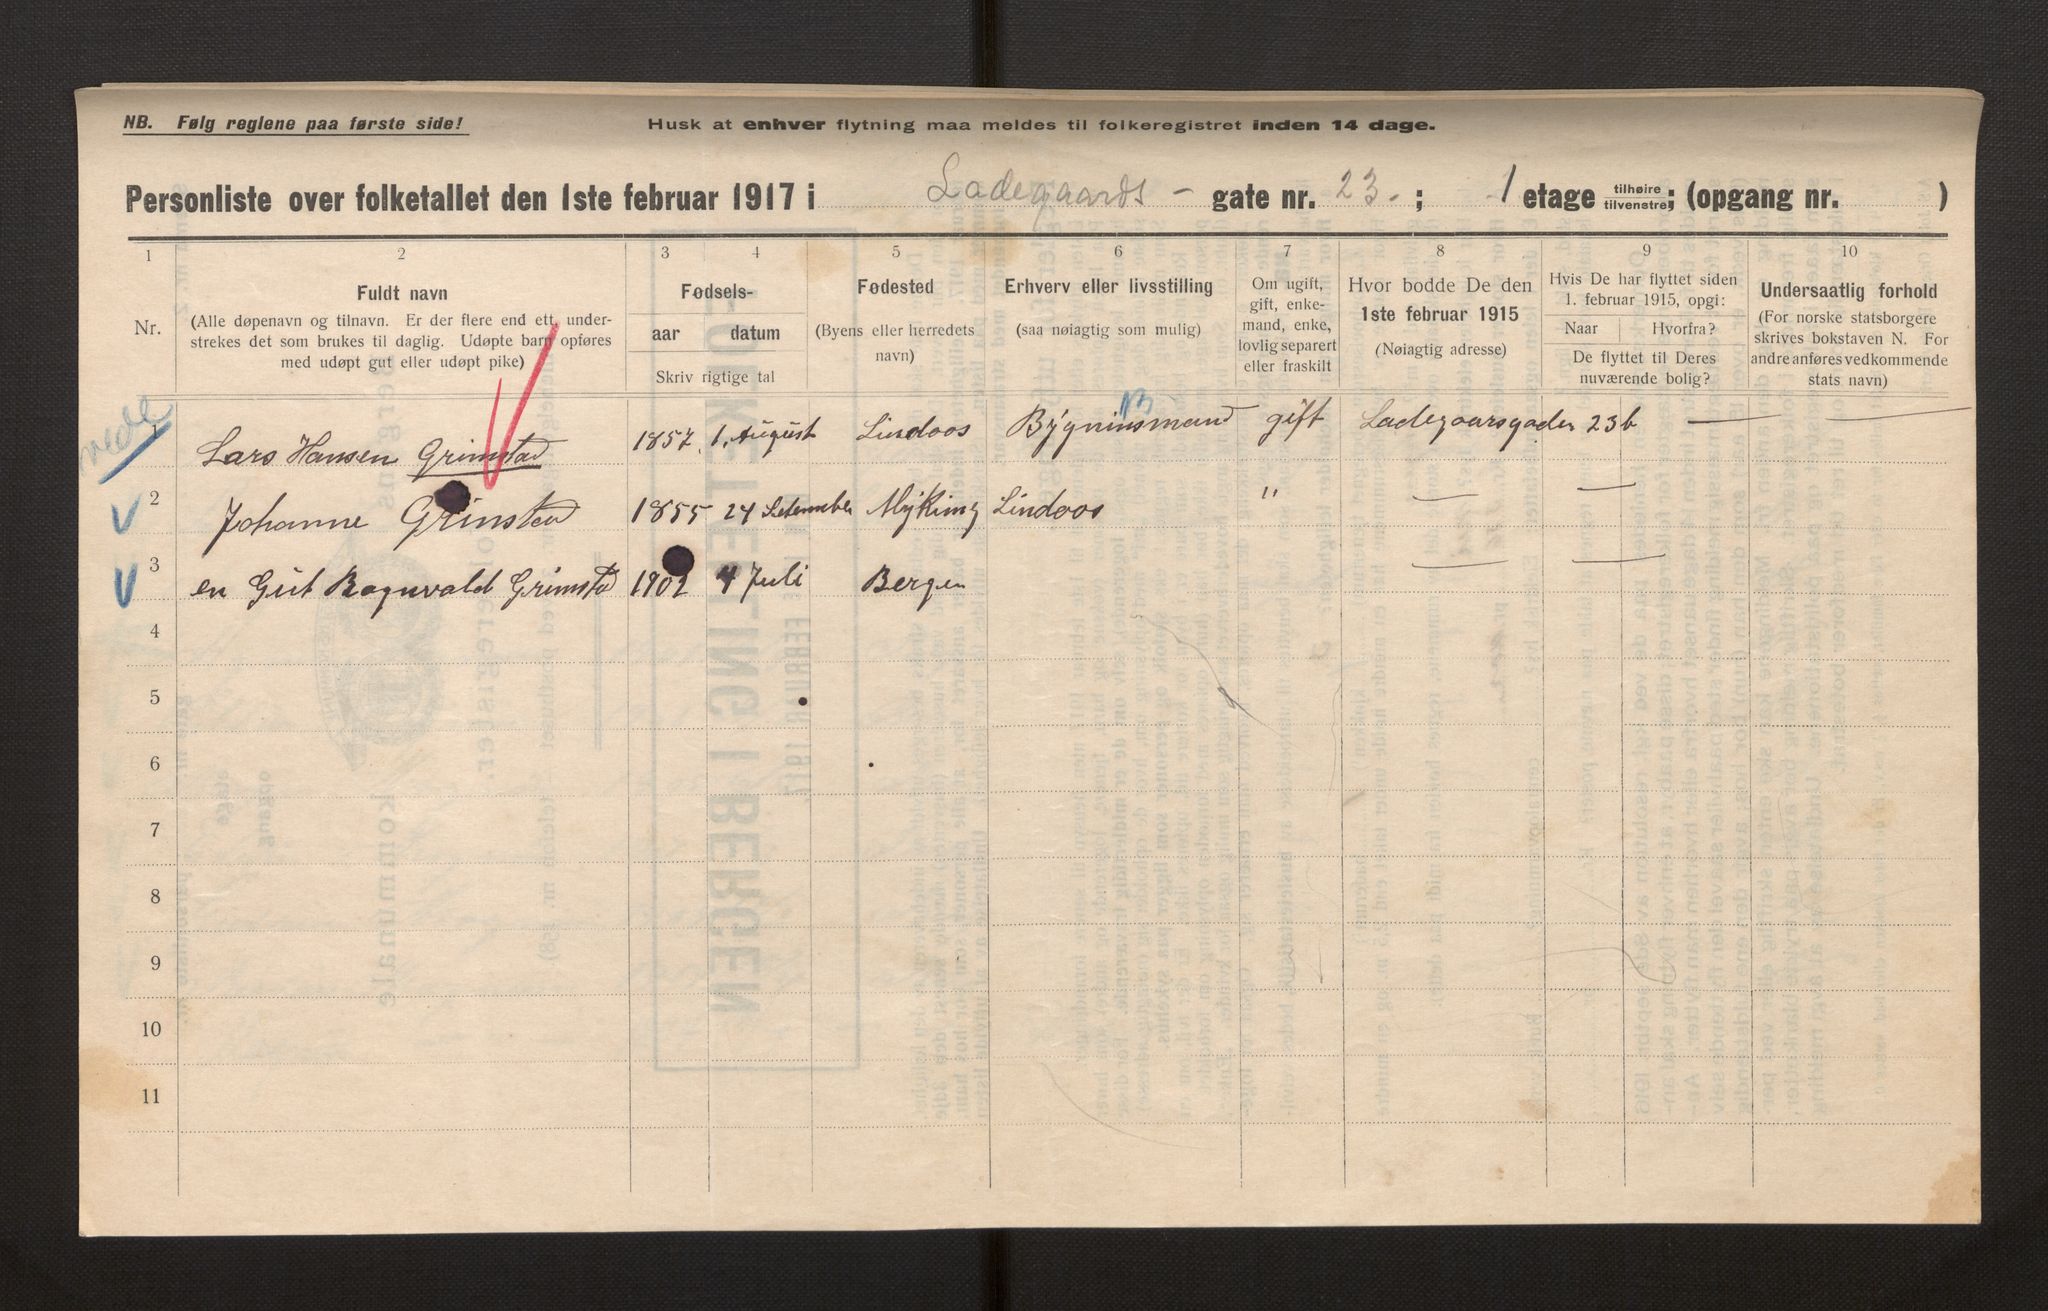 NB. Følg reglene paa første side!
Husk at enhver flytning maa meldes til folkeregistret inden 14 dage.
Personliste over folketallet den 1ste februar 1917 i Ladegaards - gate nr. 23. ; 1 etage tilhøire tilvenstre; (opgang nr. )
1 2 3 4 5 6 7 8 9 10
Nr.
Fuldt navn
(Alle døpenavn og tilnavn. Er der flere end ett, under-
strekes det som brukes til daglig. Udøpte barn opføres
med udøpt gut eller udøpt pike)
Fødsels-
aar datum
Skriv rigtige tal
Fødested
(Byens eller herredets
navn)
Erhverv eller livsstilling
(saa nøiagtig som mulig)
Om ugift,
gift, enke-
mand, enke,
lovlig separert
eller fraskilt
Hvor bodde De den
1ste februar 1915
(Nøiagtig adresse)
Hvis De har flyttet siden
1. februar 1915, opgi:
Naar Hvorfra?
De flyttet til Deres
nuværende bolig?
Undersaatlig forhold
(For norske statsborgere
skrives bokstaven N. For
andre anføres vedkommende
stats navn)
1 Lars Hansen Grimstad 1857 1. August Lindoos Bygninsmand gift Ladegaarsgaden 23b — —
2 Johanne Grinstad 1855 24 Setember Myking Lindoos " — —
3 en Gut Ragnvald Grimstad 1902 4 Juli Bergen — —
4
5
6
7
8
9
10
11